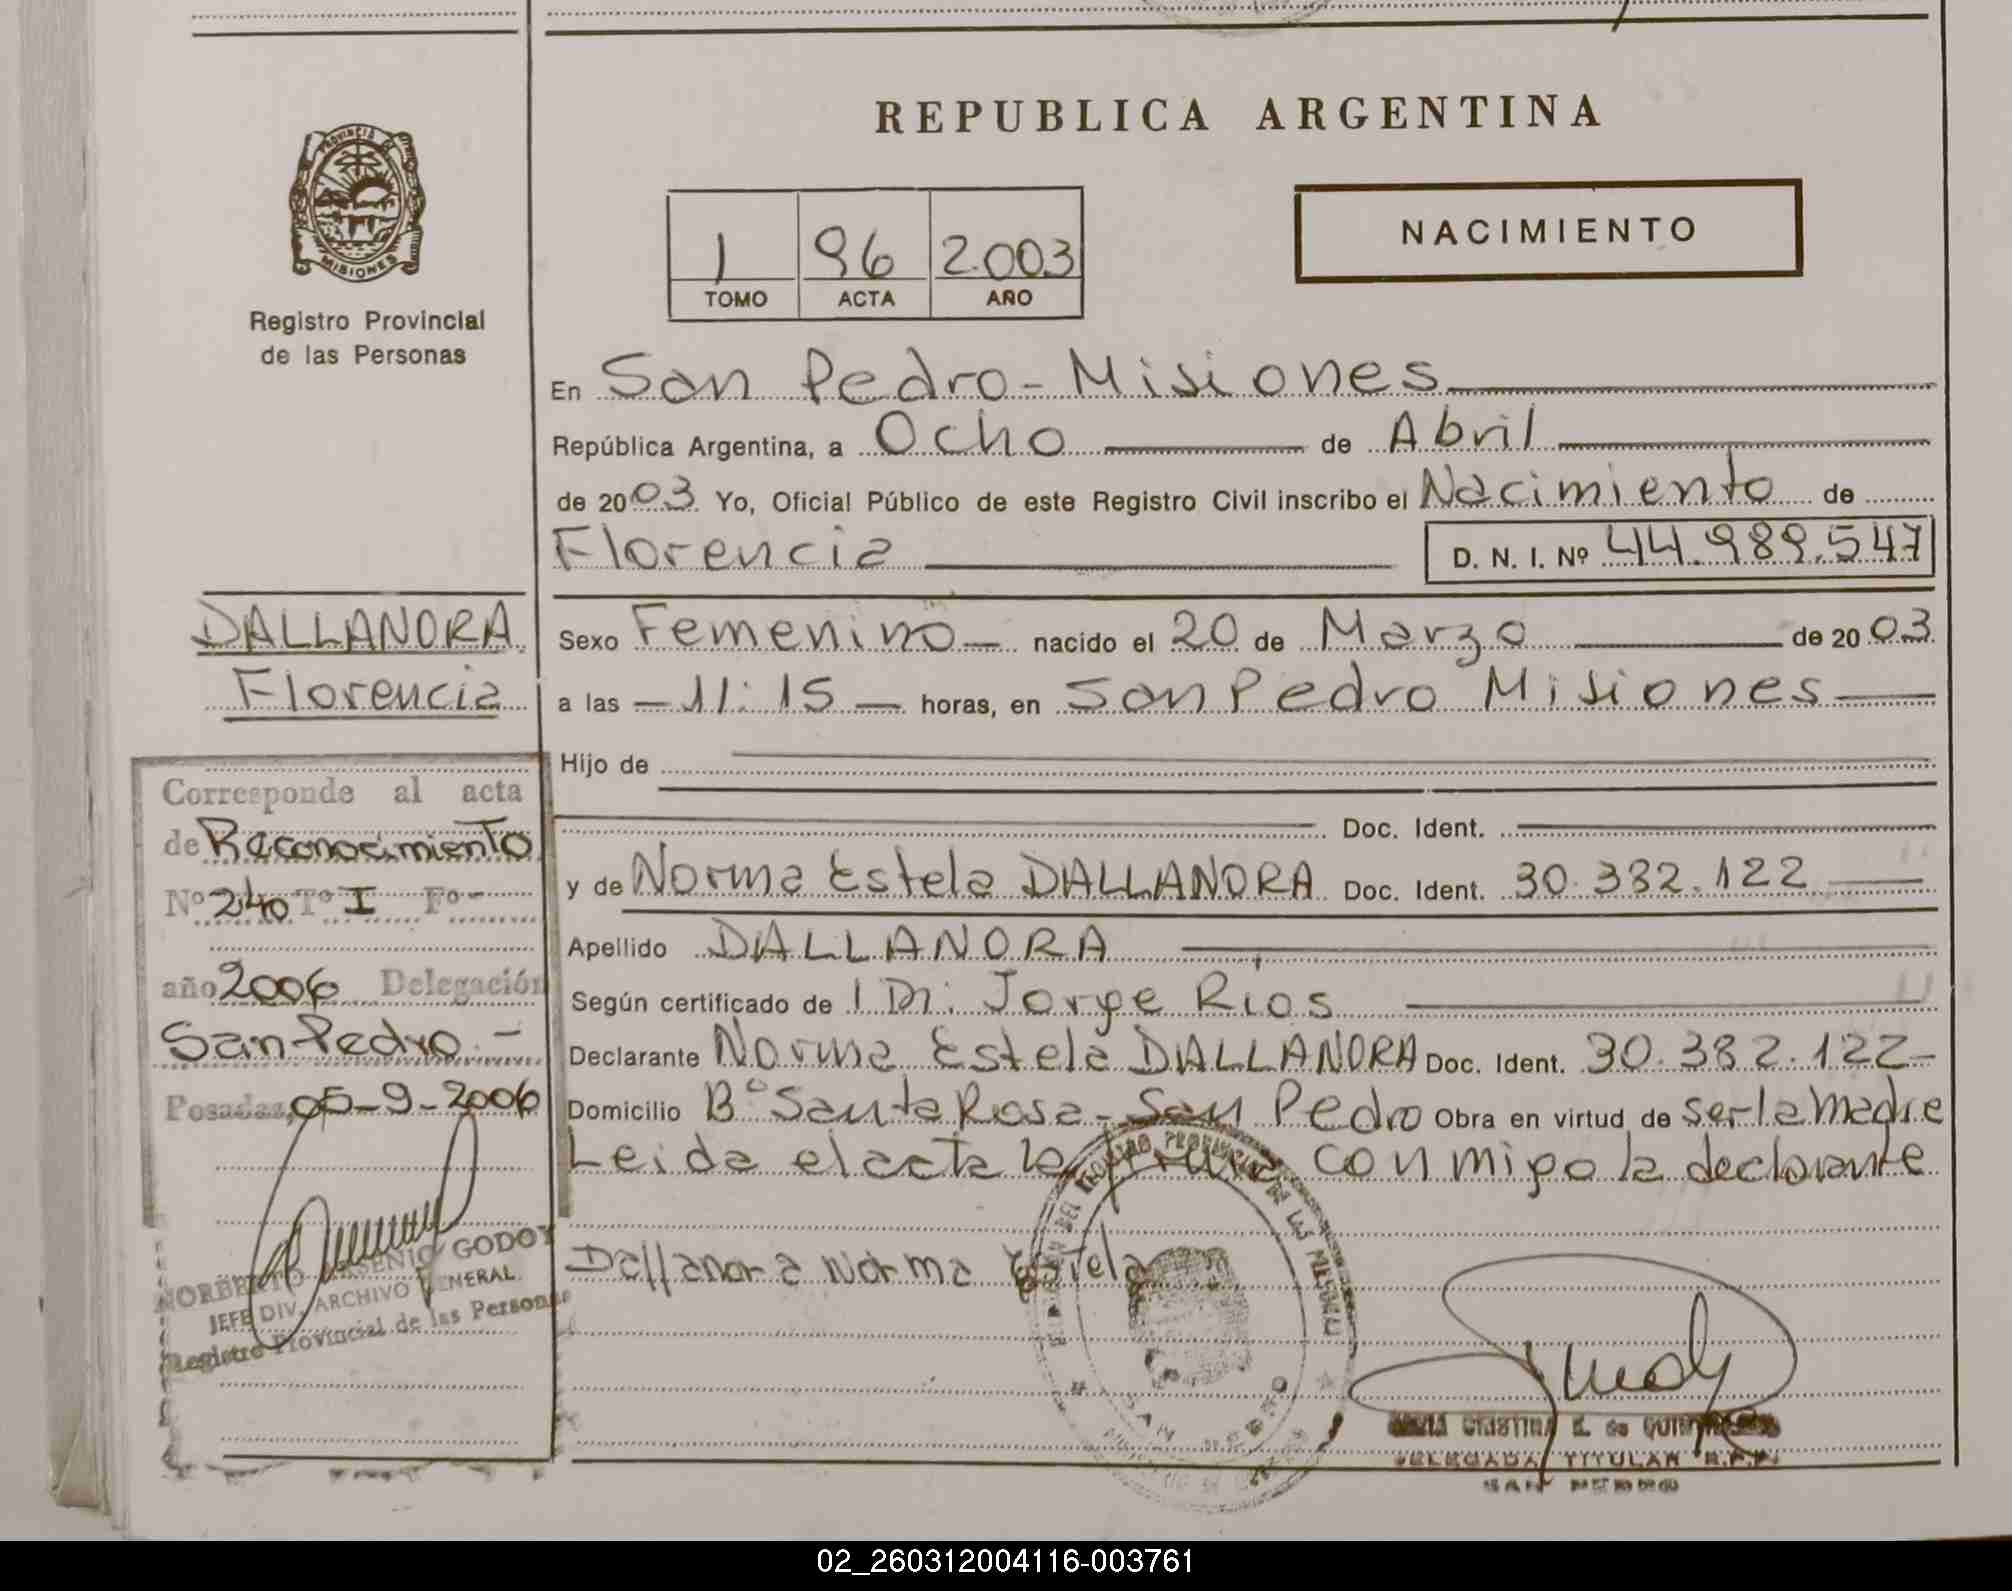 REPUBLICA ARGENTINA
PROVINCIA DE
MISIONES
Registro Provincial
de las Personas
1 96 2.003
TOMO ACTA AÑO
NACIMIENTO
En San Pedro - Misiones
República Argentina, a Ocho de Abril
de 2003 Yo, Oficial Público de este Registro Civil inscribo el Nacimiento de
Florencia D. N. I. Nº 44.989.547
DALLANORA
Florencia
Sexo Femenino nacido el 20 de Marzo de 2003
a las - 11:15 - horas, en San Pedro Misiones
Hijo de
Doc. Ident.
y de Norma Estela DALLANORA Doc. Ident. 30.382.122
Apellido DALLANORA
Según certificado de Dr. Jorge Rios
Declarante Norma Estela DALLANORA Doc. Ident. 30.382.122-
Domicilio Bº Santa Rosa - San Pedro Obra en virtud de ser la madre
Leida el acta la firma conmigo la declarante
Dallanora Norma Estela
Corresponde al acta
de Reconocimiento
Nº 240 Tº I Fº -
año 2006 Delegación
San Pedro.-
Posadas, 05-9-2006
NORBERTO ARSENIO GODOY
JEFE DIV. ARCHIVO GENERAL
Registro Provincial de las Personas
DEL REGISTRO PROVINCIAL DE LAS PERSONAS
MARIA CRISTINA E. de
DELEGADA TITULAR R.P.P.
SAN PEDRO
02_260312004116-003761